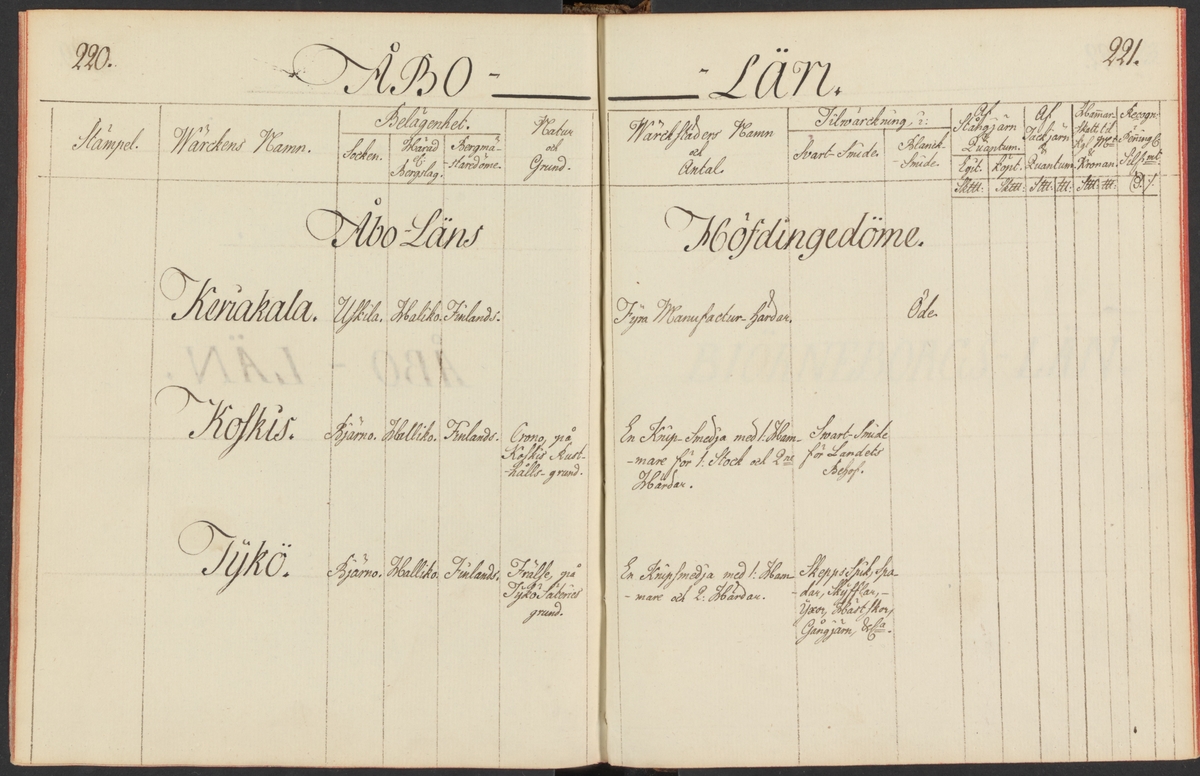 220.
ÅBO - LÄN.
221.
Stämpel.
Wärckens Namn.
Belägenhet.
Socken.
Härad
Bergslag.
Bergmä-
staredöme.
Natur
och
Grund.
Wärckstäders Namn
och
Antal.
Tilwärckning, i:
Svart-Smide.
Blanck-
Smide.
Af
Stångjärn
Quantum.
Egit.
Köpt.
Af
Tackjärn
Quantum.
Hammar-
Skatt til
Kronan.
Recogn:
Pening
Silf: mt
Åbo-Läns Höfdingedöme.
Kiriakala. Uskila. Haliko. Finlands. Fyra Manufactur-härdar. Öde.
Koskis. Bjärno. Halliko. Finlands. Crono, på
Koskis Rust-
hålls-grund.
En Knip-Smedja med 1: Ham-
-mare för 1: Stock och 2ne
Härdar.
Svart-Smide
för Landets
Behof.
Tykö. Bjärno. Halliko. Finlands. Frälse, på
Tykö Säteries
grund.
En Knipsmedja med 1: Ham-
-mare och 2: Härdar.
Skepps Spik, Spa-
-dar, Skyfflar,-
Yxor, Hästskor,
Gångjärn,